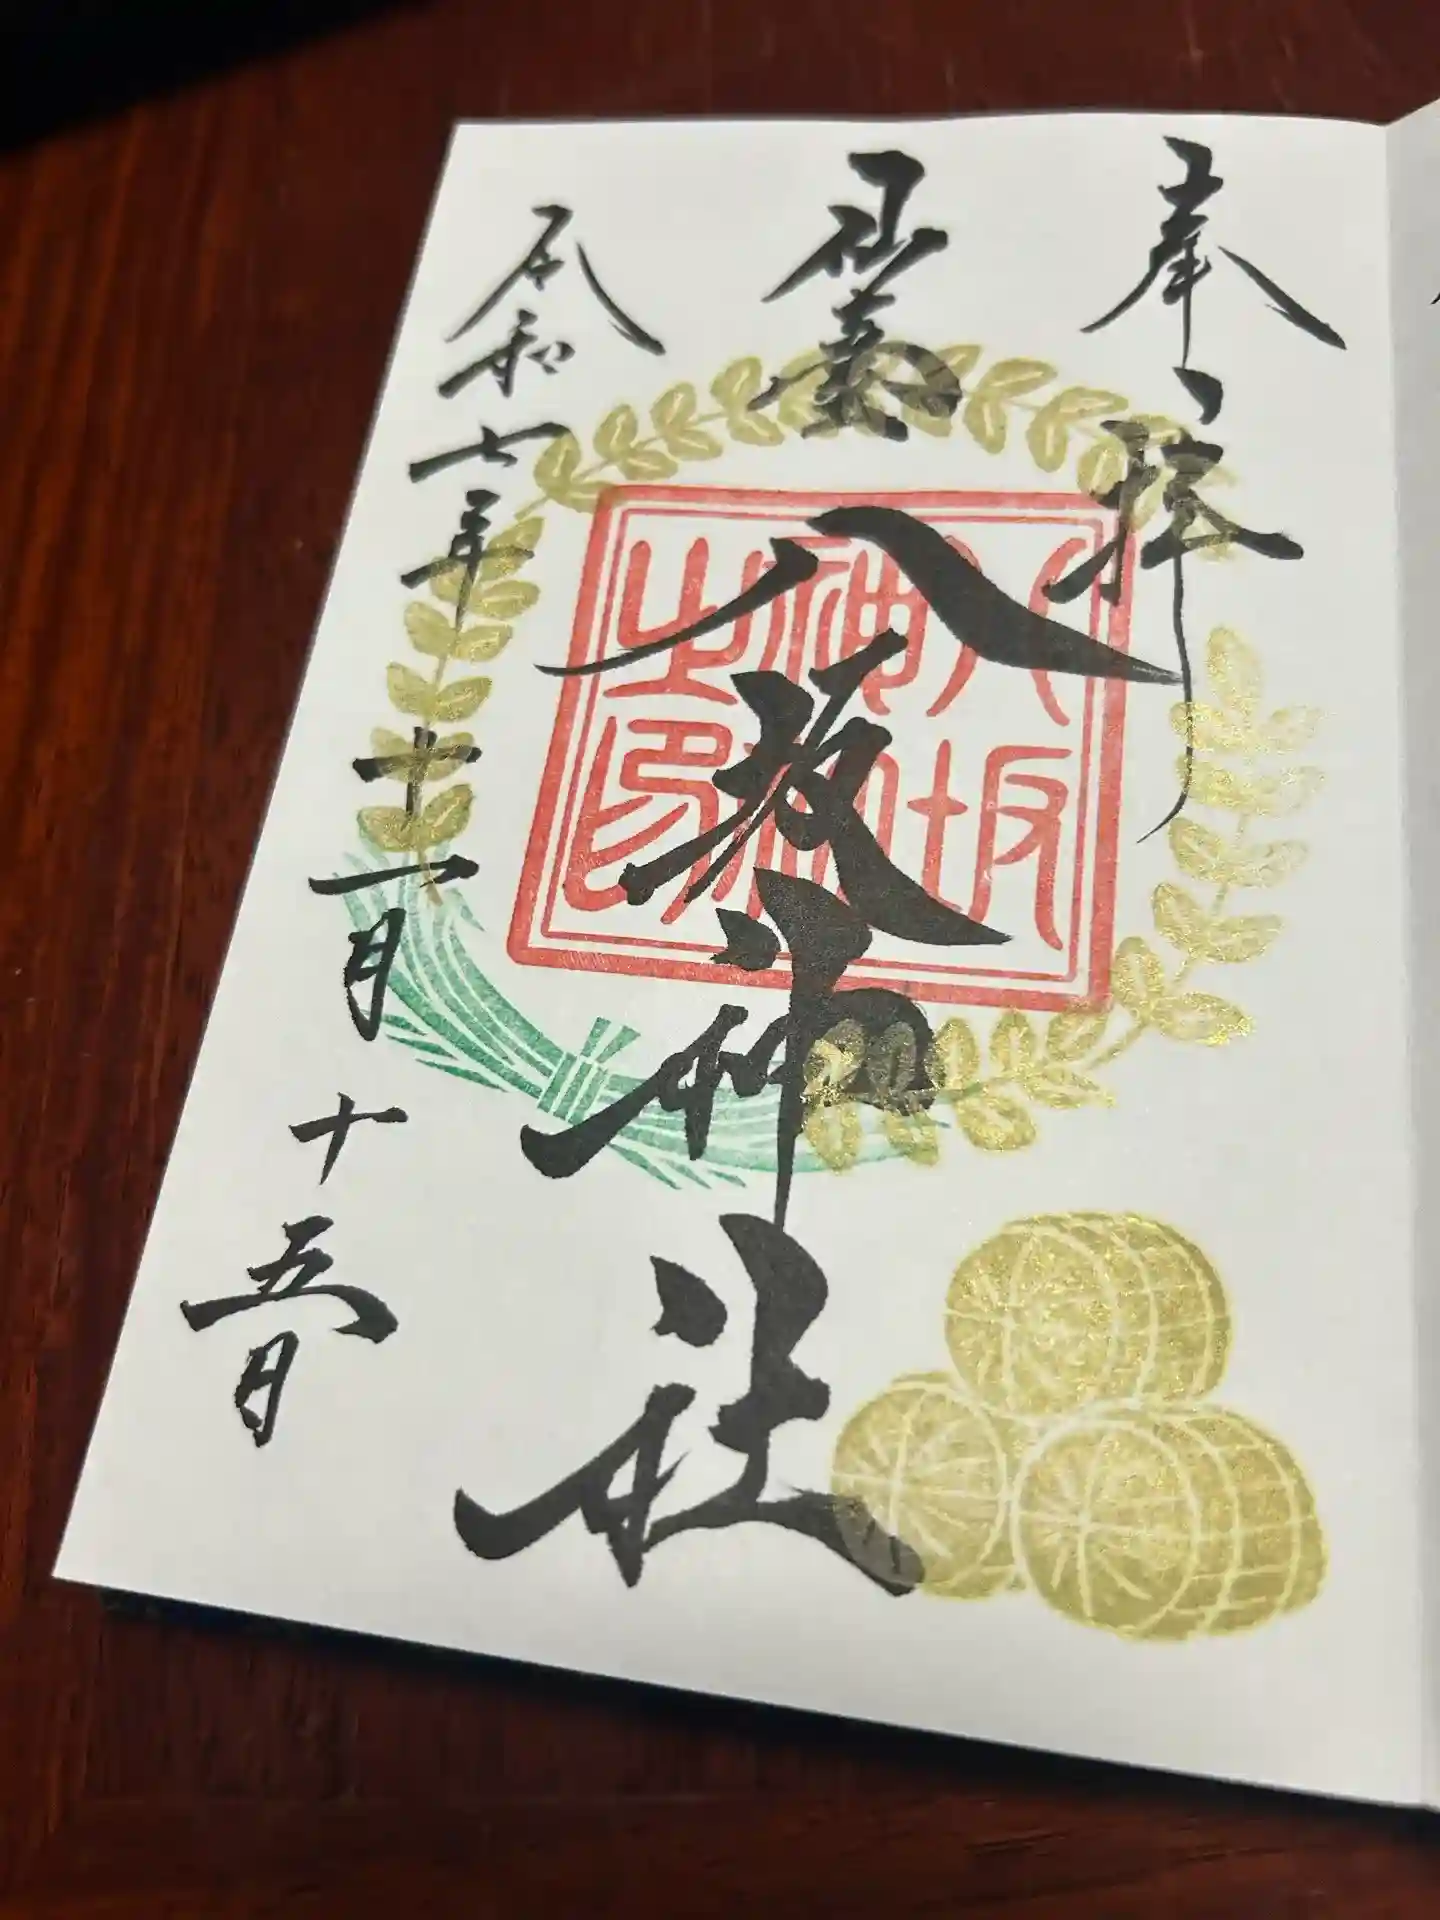 奉拝
八坂神社
令和七年十一月十五日
八坂
神社
之印